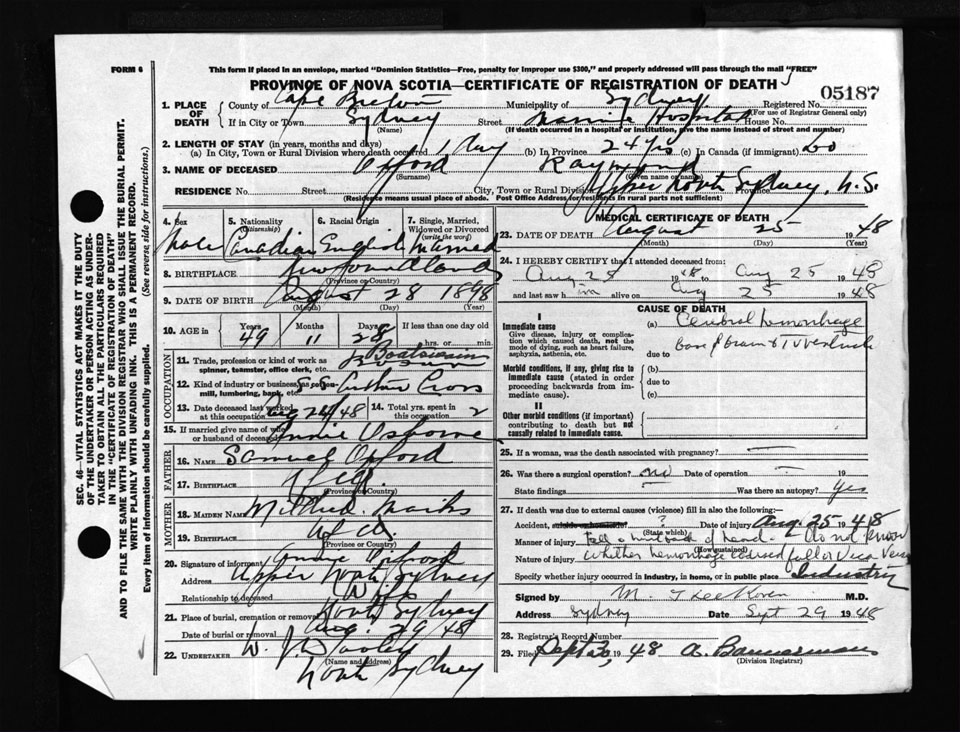 FORM 6
This form if placed in an envelope, marked "Dominion Statistics—Free, penalty for improper use $300," and properly addressed will pass through the mail "FREE"
PROVINCE OF NOVA SCOTIA—CERTIFICATE OF REGISTRATION OF DEATH
05187
1. PLACE OF DEATH County of Cape Breton Municipality of Sydney Registered No.
(For use of Registrar General only)
If in City or Town Sydney Street Marine Hospital House No.
(Name) (If death occurred in a hospital or institution, give the name instead of street and number)
2. LENGTH OF STAY (in years, months and days)
(a) In City, Town or Rural Division where death occurred 1 day (b) In Province 24 yrs (c) In Canada (if immigrant) do
3. NAME OF DECEASED Oxford Raymond
(Surname) (Given name or names)
RESIDENCE No. Street City, Town or Rural Division Upper North Sydney, N.S. Province
(Residence means usual place of abode. Post Office Address for residents in rural parts not sufficient)
4. Sex Male
5. Nationality (Citizenship) Canadian
6. Racial Origin English
7. Single, Married, Widowed or Divorced (write the word) Married
8. BIRTHPLACE Newfoundland
(Province or Country)
9. DATE OF BIRTH August 28 1898
(Month) (Day) (Year)
10. AGE in Years 49 Months 11 Days 28 If less than one day
hrs. or min.
OCCUPATION
11. Trade, profession or kind of work as spinner, teamster, office clerk, etc. Boatswain
12. Kind of industry or business, as cotton-mill, lumbering, bank, etc. S.S. Arthur Cross
13. Date deceased last worked at this occupation Aug 24/48
14. Total yrs. spent in this occupation 2
15. If married give name of wife or husband of deceased Annie Osborne
FATHER
16. NAME Samuel Oxford
17. BIRTHPLACE Nfld.
(Province or Country)
MOTHER
18. MAIDEN NAME Mildred Marks
19. BIRTHPLACE Nfld.
(Province or Country)
20. Signature of informant Annie Oxford
Address Upper North Sydney
Relationship to deceased Wife
21. Place of burial, cremation or removal North Sydney
Date of burial or removal Aug. 29/48
22. UNDERTAKER W. J. Dooley
(Name and address)
North Sydney
MEDICAL CERTIFICATE OF DEATH
23. DATE OF DEATH August 25 1948
(Month) (Day) (Year)
24. I HEREBY CERTIFY that I attended deceased from:
Aug 25 1948 to Aug 25 1948
and last saw him alive on Aug 25 1948
CAUSE OF DEATH
I
Immediate cause
Give disease, injury or complication which caused death, not the mode of dying, such as heart failure, asphyxia, asthenia, etc.
(a) Cerebral hemorrhage
base of brain & IV ventricle
due to
Morbid conditions, if any, giving rise to immediate cause (stated in order proceeding backwards from immediate cause).
(b)
due to
(c)
II
Other morbid conditions (if important) contributing to death but not causally related to immediate cause.
25. If a woman, was the death associated with pregnancy?
26. Was there a surgical operation? no Date of operation 19
State findings Was there an autopsy? Yes
27. If death was due to external causes (violence) fill in also the following:—
Accident, suicide or homicide? ? Date of injury Aug. 25 1948
(State which)
Manner of injury Fell & hurt back of head. - Do not know
(How sustained)
Nature of injury whether hemorrhage caused fall or vica versa
Specify whether injury occurred in industry, in home, or in public place Industry
Signed by M. M.D.
Address Sydney Date Sept 29 1948
28. Registrar's Record Number
29. Filed Sept 1948 A. Bannerman
(Division Registrar)
SEC. 46—VITAL STATISTICS ACT MAKES IT THE DUTY OF THE UNDERTAKER OR PERSON ACTING AS UNDERTAKER TO OBTAIN ALL THE PARTICULARS REQUIRED IN THE "CERTIFICATE OF REGISTRATION OF DEATH" AND TO FILE THE SAME WITH THE DIVISION REGISTRAR WHO SHALL ISSUE THE BURIAL PERMIT.
WRITE PLAINLY WITH UNFADING INK. THIS IS A PERMANENT RECORD.
Every item of information should be carefully supplied. (See reverse side for instructions.)